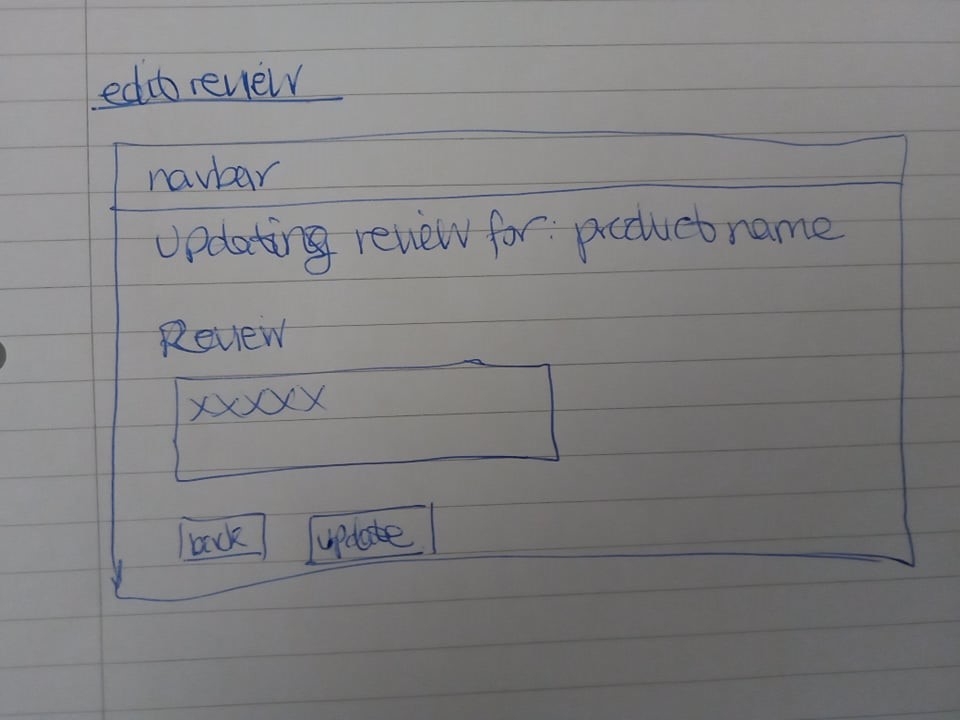 edit review
navbar
updating review for: product name
Review
xxxxx
back update